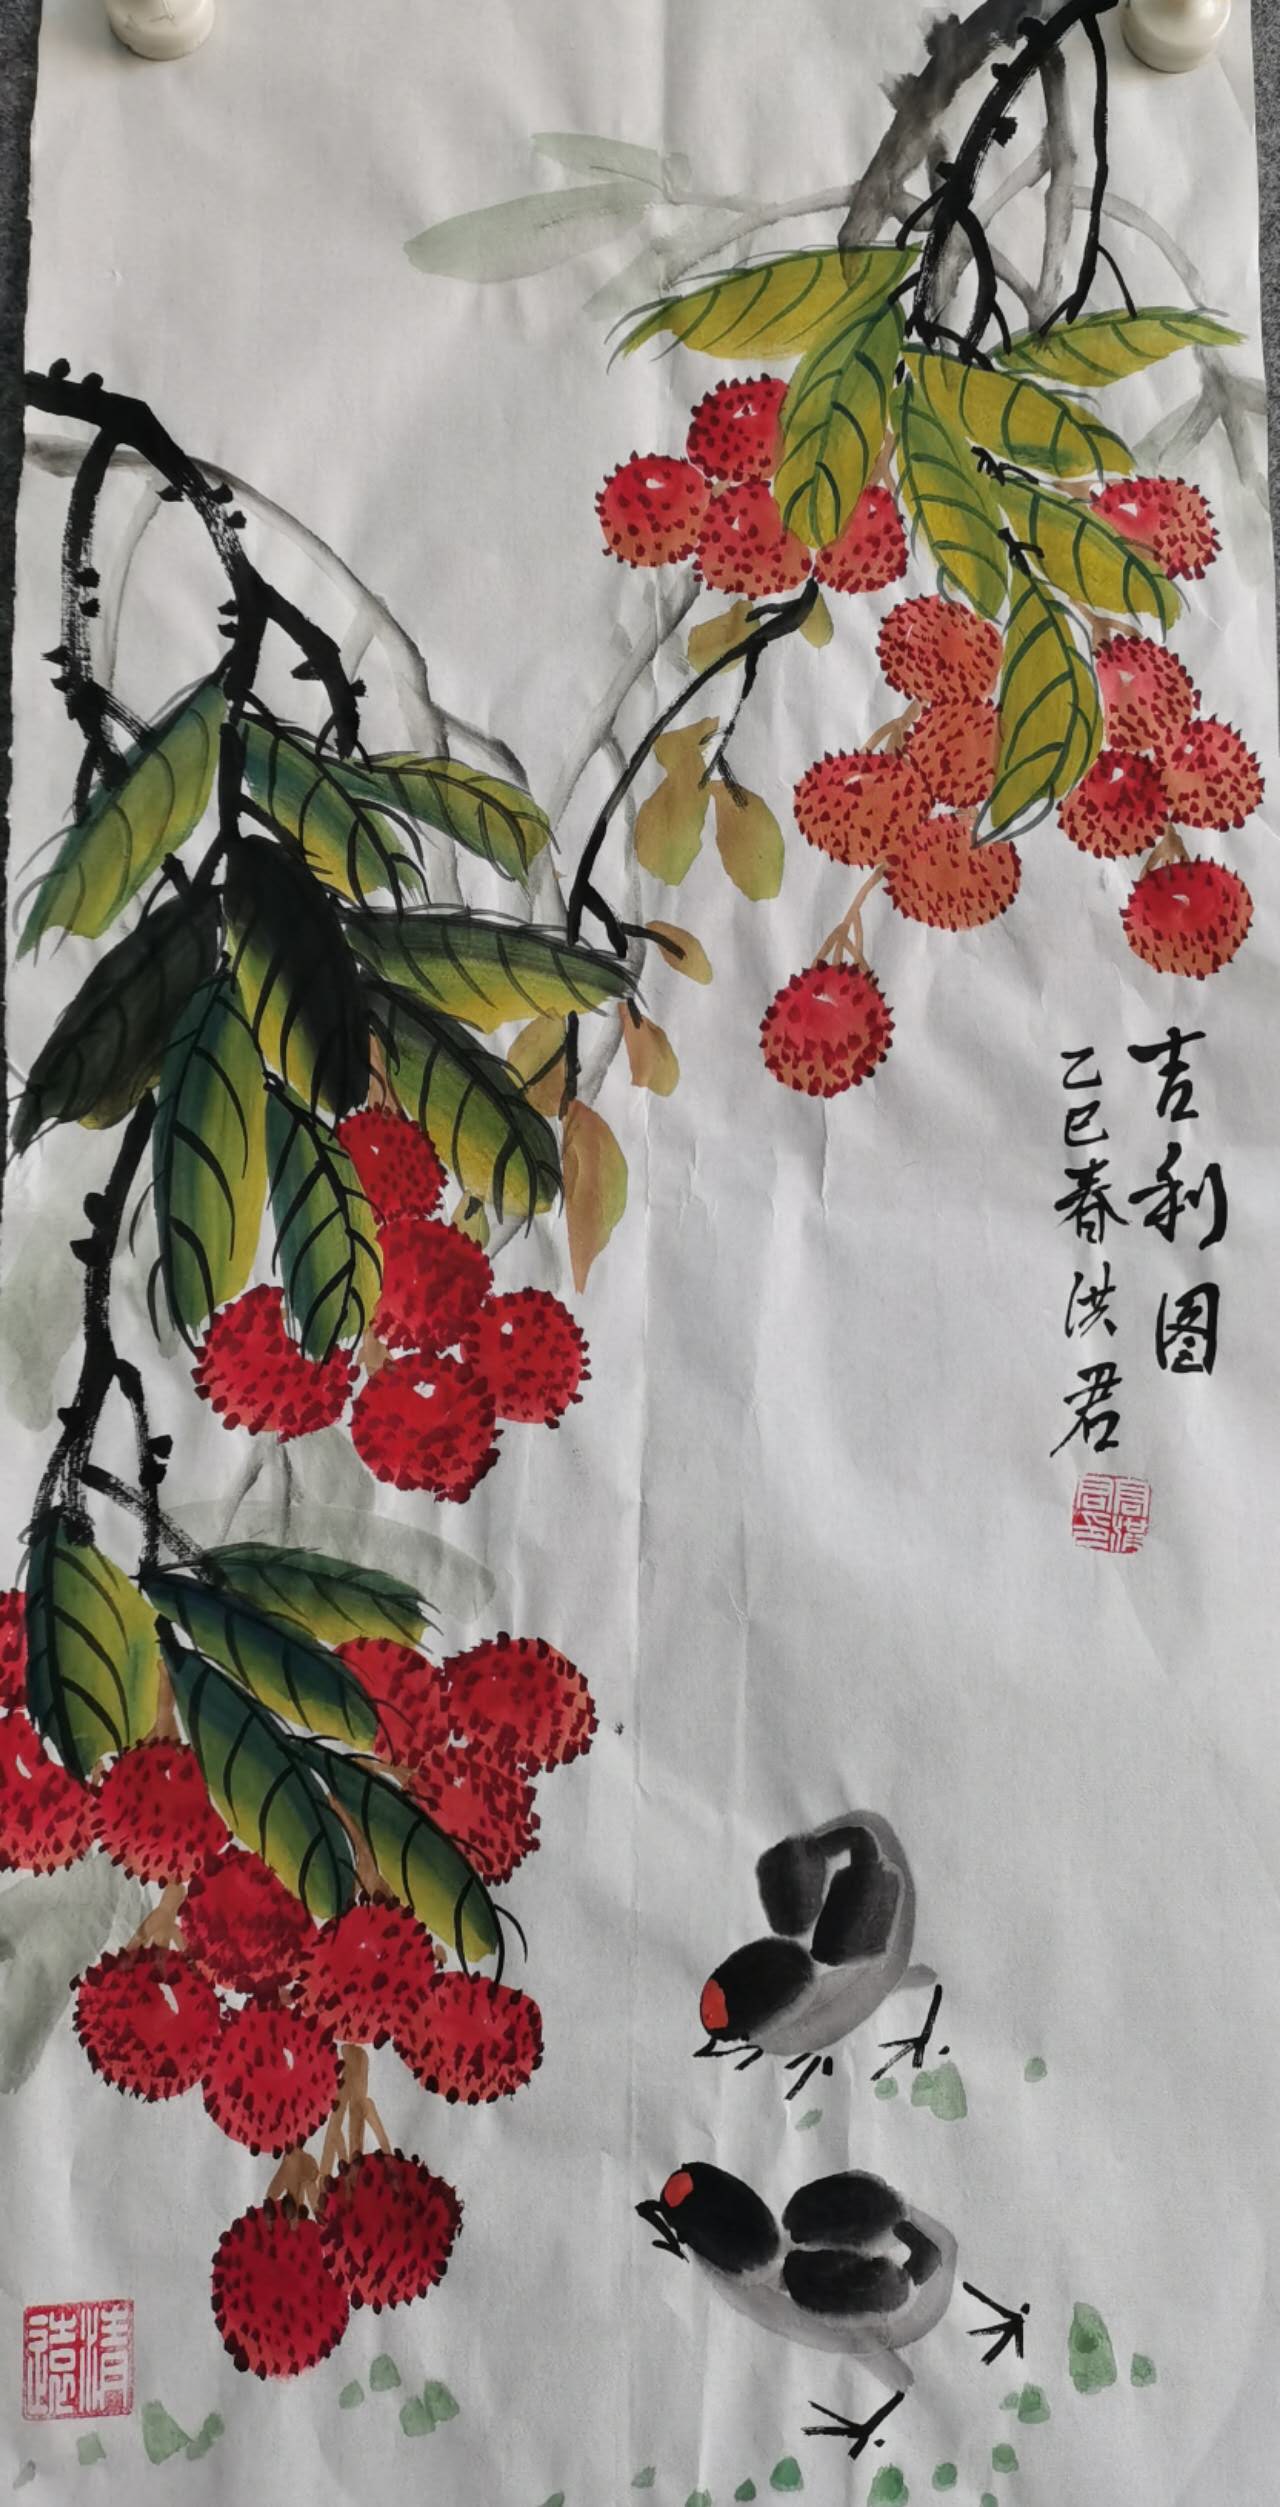 吉利图
乙巳春洪君
清远